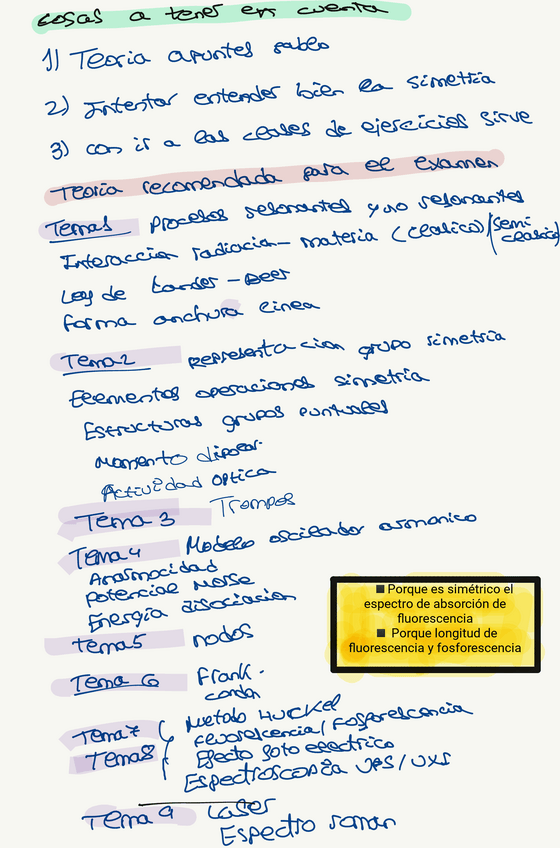 cosas a tener en cuenta
1) Teoria apuntes pablo
2) Intentar entender bien la simetria
3) con ir a las clases de ejercicios sirve
Teoria recomendada para el examen
Tema1 procesos resonantes y no resonantes
Interaccion radiacion - materia (clasico)/(semi clasico)
Ley de Lamber - Beer
forma anchura linea
Tema2 representacion grupo simetria
Elementos operaciones simetria
Estructuras grupos puntuales
Momento dipolar.
Actividad optica
Tema 3 Trompos
Tema4 Modelo oscilador armonico
Anarmocidad
potencial Morse
Energia disociacion
tema5 nodos
Tema 6 Frank-
condon
Tema7 Metodo Huckel
fluorescencia/Fosforescencia
Tema8 Efecto foto electrico
Espectroscopia UPS/UXS
Tema 9 Laser
Espectro raman
■ Porque es simétrico el
espectro de absorción de
fluorescencia
■ Porque longitud de
fluorescencia y fosforescencia